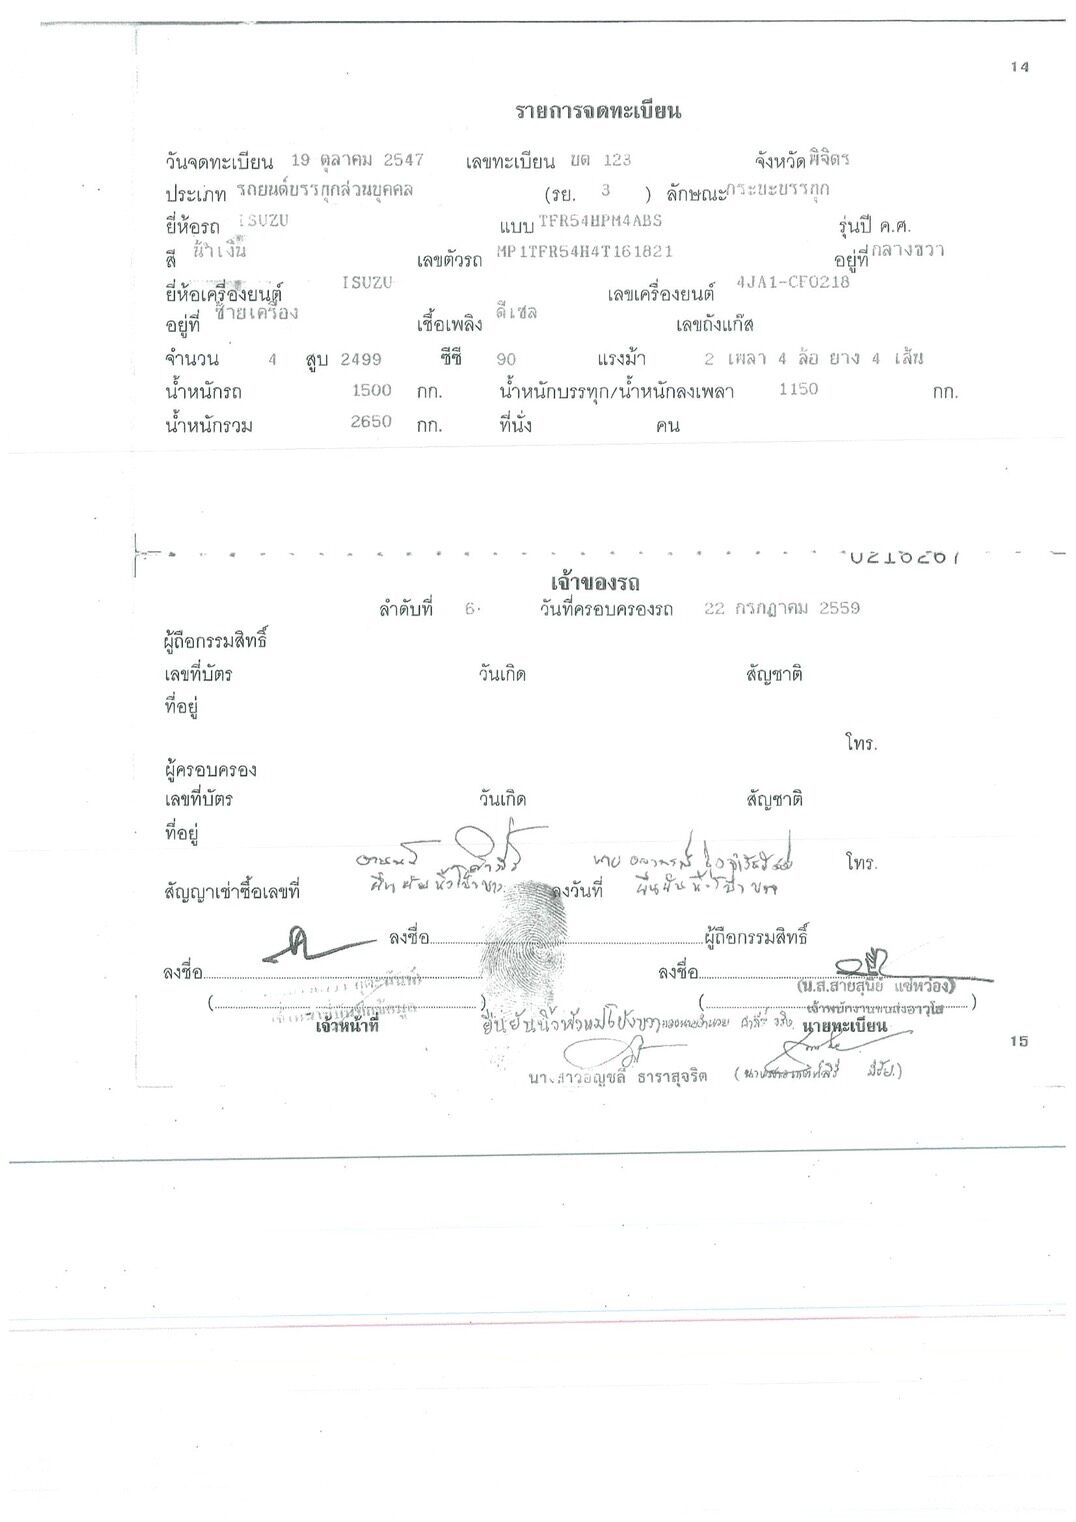 14
รายการจดทะเบียน
วันจดทะเบียน 19 ตุลาคม 2547 เลขทะเบียน บด 123 จังหวัด พิจิตร
ประเภท รถยนต์บรรทุกส่วนบุคคล (รย. 3 ) ลักษณะ กระบะบรรทุก
ยี่ห้อรถ ISUZU แบบ TFR54HPM4ABS รุ่นปี ค.ศ.
สี น้ำเงิน เลขตัวรถ MP1TFR54H4T161821 อยู่ที่ กลางขวา
ยี่ห้อเครื่องยนต์ ISUZU เลขเครื่องยนต์ 4JA1-CF0218
อยู่ที่ ซ้ายเครื่อง เชื้อเพลิง ดีเซล เลขถังแก๊ส
จำนวน 4 สูบ 2499 ซีซี 90 แรงม้า 2 เพลา 4 ล้อ ยาง 4 เส้น
น้ำหนักรถ 1500 กก. น้ำหนักบรรทุก/น้ำหนักลงเพลา 1150 กก.
น้ำหนักรวม 2650 กก. ที่นั่ง คน
เจ้าของรถ
ลำดับที่ 6. วันที่ครอบครองรถ 22 กรกฎาคม 2559
ผู้ถือกรรมสิทธิ์
เลขที่บัตร วันเกิด สัญชาติ
ที่อยู่
โทร.
ผู้ครอบครอง
เลขที่บัตร วันเกิด สัญชาติ
ที่อยู่
โทร.
สัญญาเช่าซื้อเลขที่ ลงวันที่
ลงชื่อ ผู้ถือกรรมสิทธิ์
ลงชื่อ ลงชื่อ
(น.ส.สายสุนีย์ แซ่หว่อง)
( ) ( เจ้าพนักงานขนส่งอาวุโส )
เจ้าหน้าที่ นายทะเบียน
15
นางสาวอัญชลี ธาราสุจริต